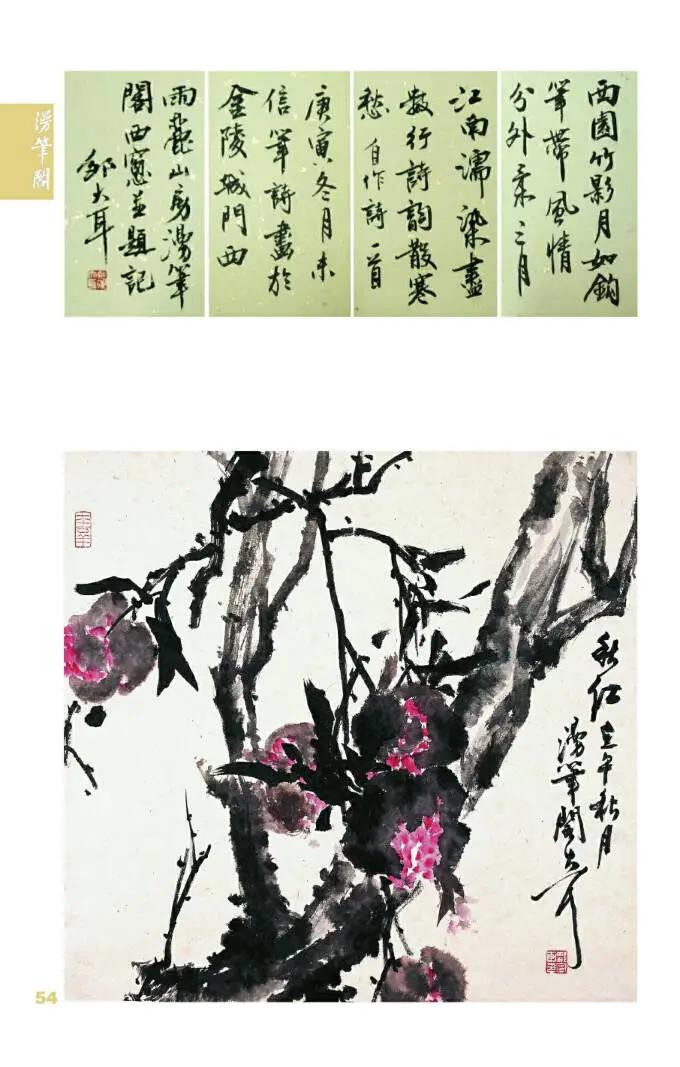 漫筆閣
西園竹影月如鈎
筆帶風情
分外柔三月
江南濡染盡
數行詩詞散寒
愁 自作詩一首
庚寅冬月末
信筆詩畫於
金陵城門西
雨麓山房漫筆
閣西窗並題記
鄒大耳
秋红 壬午秋月
漫筆閣大耳
54